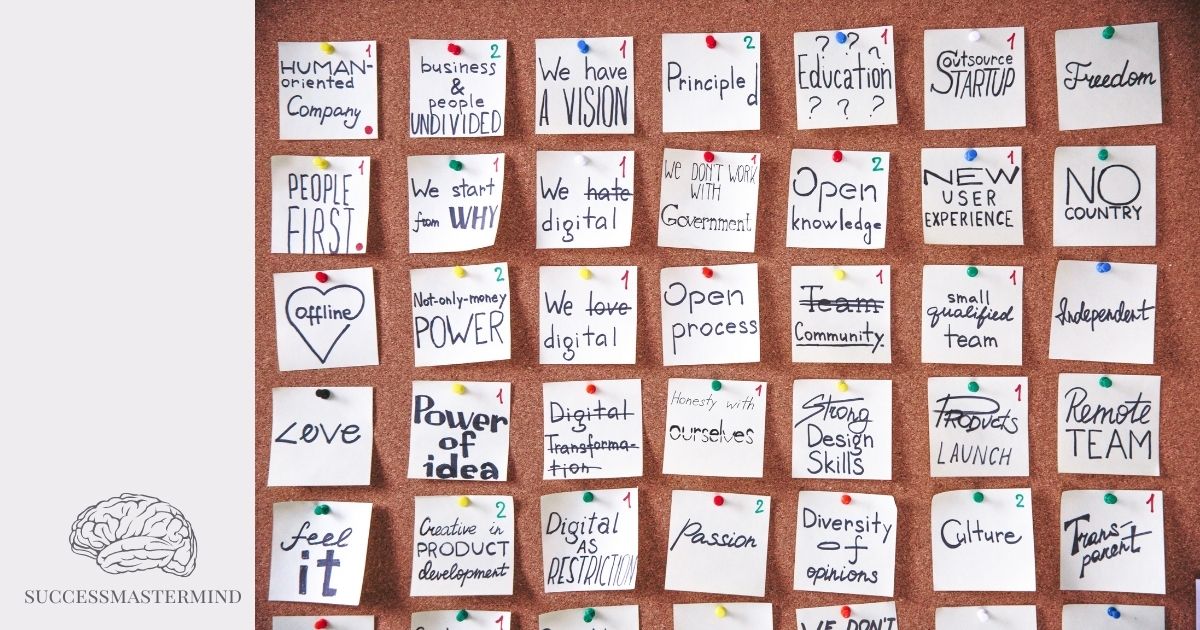 1
HUMAN-
oriented
Company
2
business
&
people
UNDIVIDED
1
We have
A VISION
2
Principled
1
? ? ?
Education
? ? ?
1
Outsource
STARTUP
Freedom
1
PEOPLE
FIRST
1
We start
from WHY
1
We hate
digital
1
We DON'T WORK
WITH
Government
2
Open
knowledge
1
NEW
USER
EXPERIENCE
NO
COUNTRY
offline
2
Not-only-money
POWER
1
We love
digital
Open
process
1
Team
Community
1
small
qualified
team
Independent
Love
1
Power
of
idea
Digital
Transforma-
tion
1
Honesty with
ourselves
Strong
Design
Skills
1
PRODUCTS
LAUNCH
Remote
TEAM
feel
it
2
Creative in
PRODUCT
development
1
Digital
AS
RESTRICTION
2
Passion
Diversity
of
opinions
2
Culture
1
Trans-
parent
1
1
WE DON'T
SUCCESSMASTERMIND